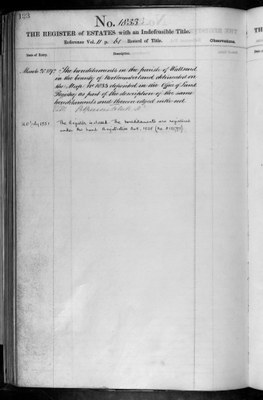 123
No. 1833
THE REGISTER of ESTATES with an Indefeasible Title.
Reference Vol. p. Record of Title.
Date of Entry.
Description.
Observations.
March The hereditaments in the parish of Wallsend
in the county of Northumberland delineated on
the Map No 1833 deposited in the Office of Land
Registry as part of the description of the same
hereditaments and thereon edged with red
The Register is closed. The hereditaments are registered
under the Land Registration Act, 1925